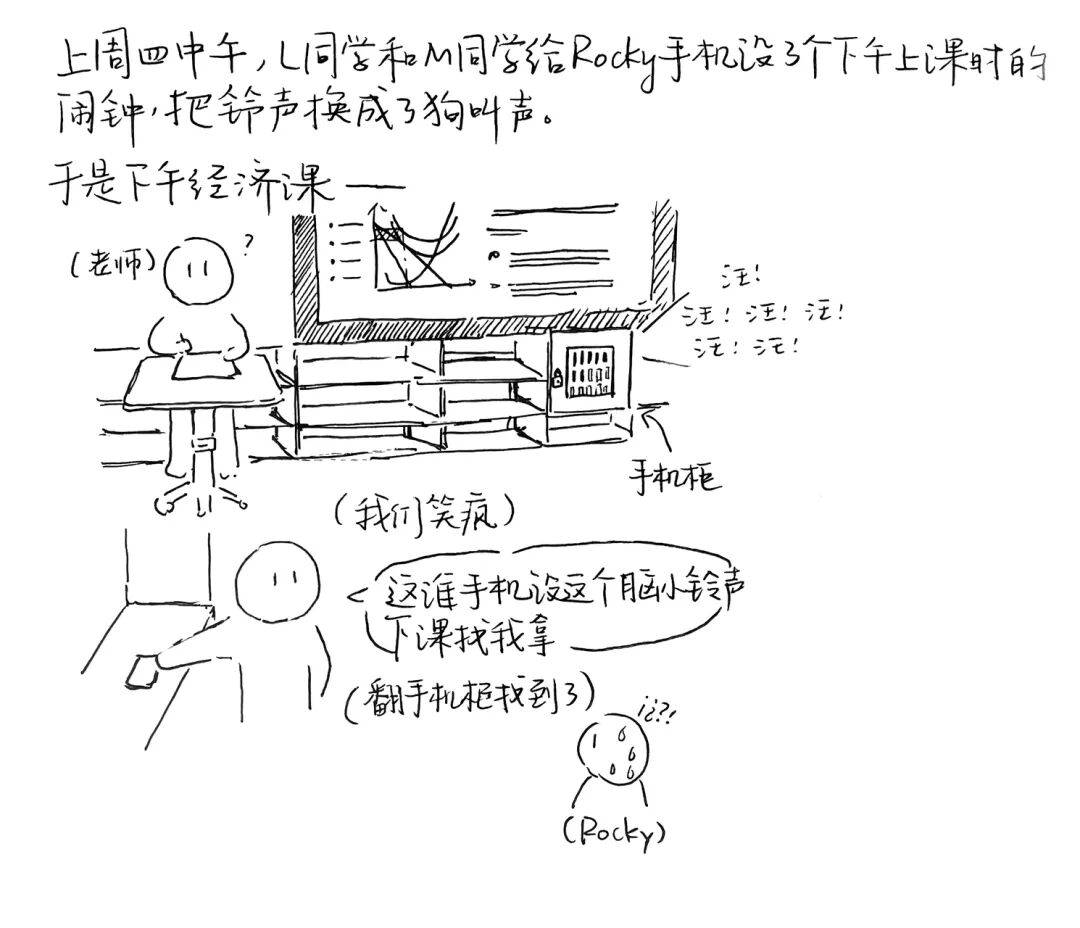 上周四中午,L同学和M同学给Rocky手机设了个下午上课时的
闹钟,把铃声换成了狗叫声。
于是下午经济课——
(老师)
?
汪!
汪!汪!汪!
汪!汪!
手机柜
(我们笑疯)
这谁手机设这个脑小铃声
下课找我拿
(翻手机柜找到了)
(Rocky)